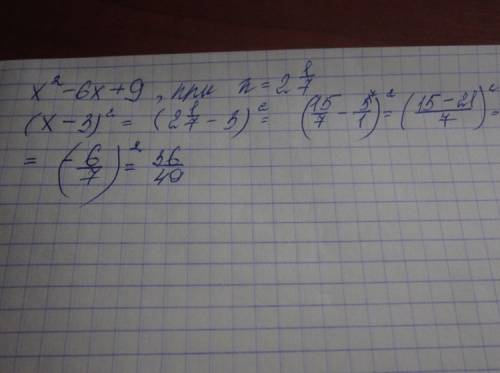 x² - 6x + 9, при x = 2 1/7
(x - 3)² = (2 1/7 - 3)² = (15/7 - 3/1)² = (15 - 21/7)² =
= (-6/7)² = 36/49